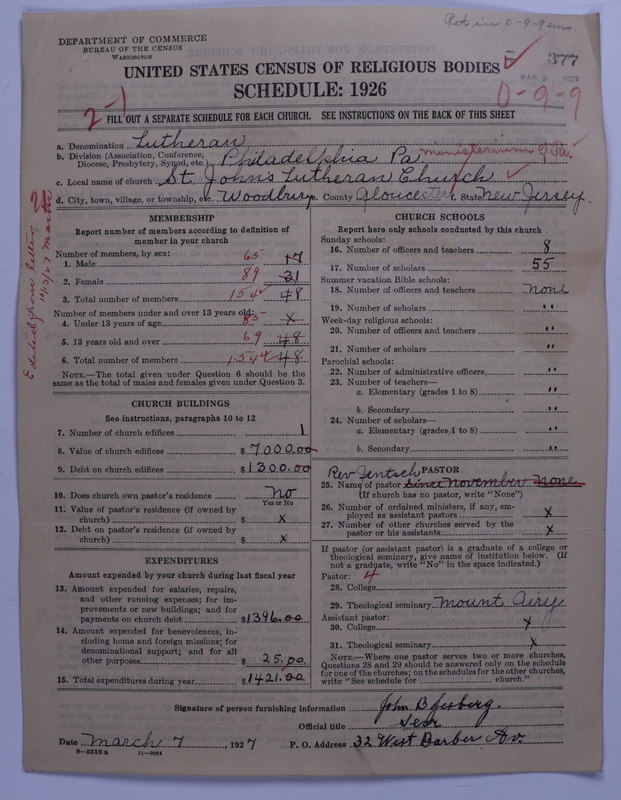 Put in 0-9-9
DEPARTMENT OF COMMERCE
BUREAU OF THE CENSUS
WASHINGTON
377
MAR 9 1927
UNITED STATES CENSUS OF RELIGIOUS BODIES
SCHEDULE: 1926
0-9-9
2-1
FILL OUT A SEPARATE SCHEDULE FOR EACH CHURCH. SEE INSTRUCTIONS ON THE BACK OF THIS SHEET
a. Denomination Lutheran
b. Division (Association, Conference, Diocese, Presbytery, Synod, etc.) Philadelphia Pa. ministerium of Pa.
c. Local name of church St. Johns Lutheran Church
d. City, town, village, or township, etc. Woodbury e. County Gloucester f. State New Jersey.
Edited from letter 11/13/27
MEMBERSHIP
Report number of members according to definition of
member in your church
Number of members, by sex:
1. Male 65 17
2. Female 89 31
3. Total number of members 154 48
Number of members under and over 13 years old:
4. Under 13 years of age 85 x
5. 13 years old and over 69 48
6. Total number of members 154 48
NOTE.—The total given under Question 6 should be the
same as the total of males and females given under Question 3.
CHURCH BUILDINGS
See instructions, paragraphs 10 to 12
7. Number of church edifices 1
8. Value of church edifices $7000.00
9. Debt on church edifices $1300.00
10. Does church own pastor's residence No
Yes or No
11. Value of pastor's residence (if owned by
church) $ x
12. Debt on pastor's residence (if owned by
church) $ x
EXPENDITURES
Amount expended by your church during last fiscal year
13. Amount expended for salaries, repairs,
and other running expenses; for im-
provements or new buildings; and for
payments on church debt $1396.00
14. Amount expended for benevolences, in-
cluding home and foreign missions; for
denominational support; and for all
other purposes $ 25.00
15. Total expenditures during year $1421.00
CHURCH SCHOOLS
Report here only schools conducted by this church
Sunday schools:
16. Number of officers and teachers 8
17. Number of scholars 55
Summer vacation Bible schools:
18. Number of officers and teachers none
19. Number of scholars "
Week-day religious schools:
20. Number of officers and teachers "
21. Number of scholars "
Parochial schools:
22. Number of administrative officers, "
23. Number of teachers—
a. Elementary (grades 1 to 8) "
b. Secondary "
24. Number of scholars—
a. Elementary (grades 1 to 8) "
b. Secondary "
PASTOR
Rev Jentsch
25. Name of pastor since November None
(If church has no pastor, write "None")
26. Number of ordained ministers, if any, em-
ployed as assistant pastors x
27. Number of other churches served by the
pastor or his assistants x
If pastor (or assistant pastor) is a graduate of a college or
theological seminary, give name of institution below. (If
not a graduate, write "No" in the space indicated.)
Pastor: 4
28. College
29. Theological seminary Mount Airy
Assistant pastor:
30. College x
31. Theological seminary x
NOTE.—Where one pastor serves two or more churches,
Questions 28 and 29 should be answered only on the schedule
for one of the churches; on the schedules for the other churches,
write "See schedule for church."
Signature of person furnishing information John B
Official title Secr
Date March 7, 1927 P. O. Address 32 West Barber Av.
8—5518 a 11—9034